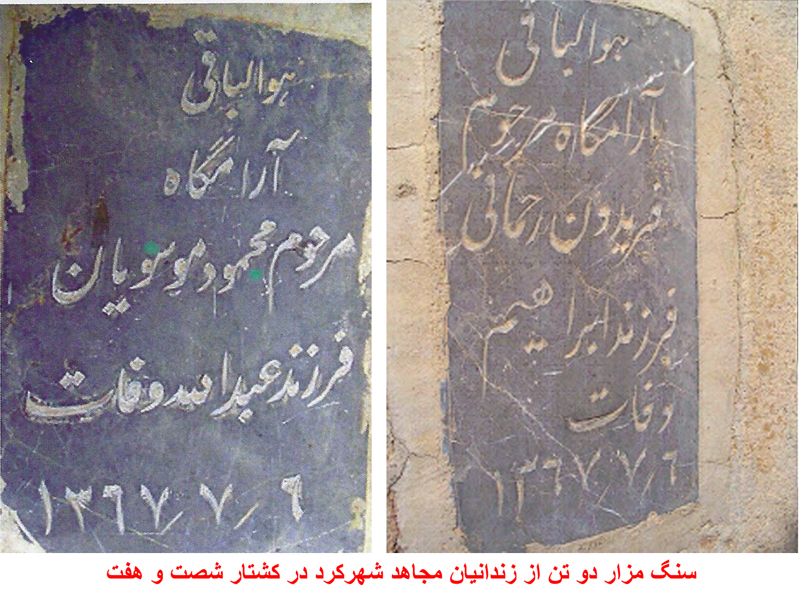 هوالباقی
آرامگاه
مرحوم محمود موسویان
فرزند عبدالله وفات
۱۳۶۷٫۷٫۶
هوالباقی
آرامگاه مرحوم
فریدون رحمانی
فرزند ابراهیم
وفات
۱۳۶۷٫۷٫۶
سنگ مزار دو تن از زندانیان مجاهد شهرکرد در کشتار شصت و هفت